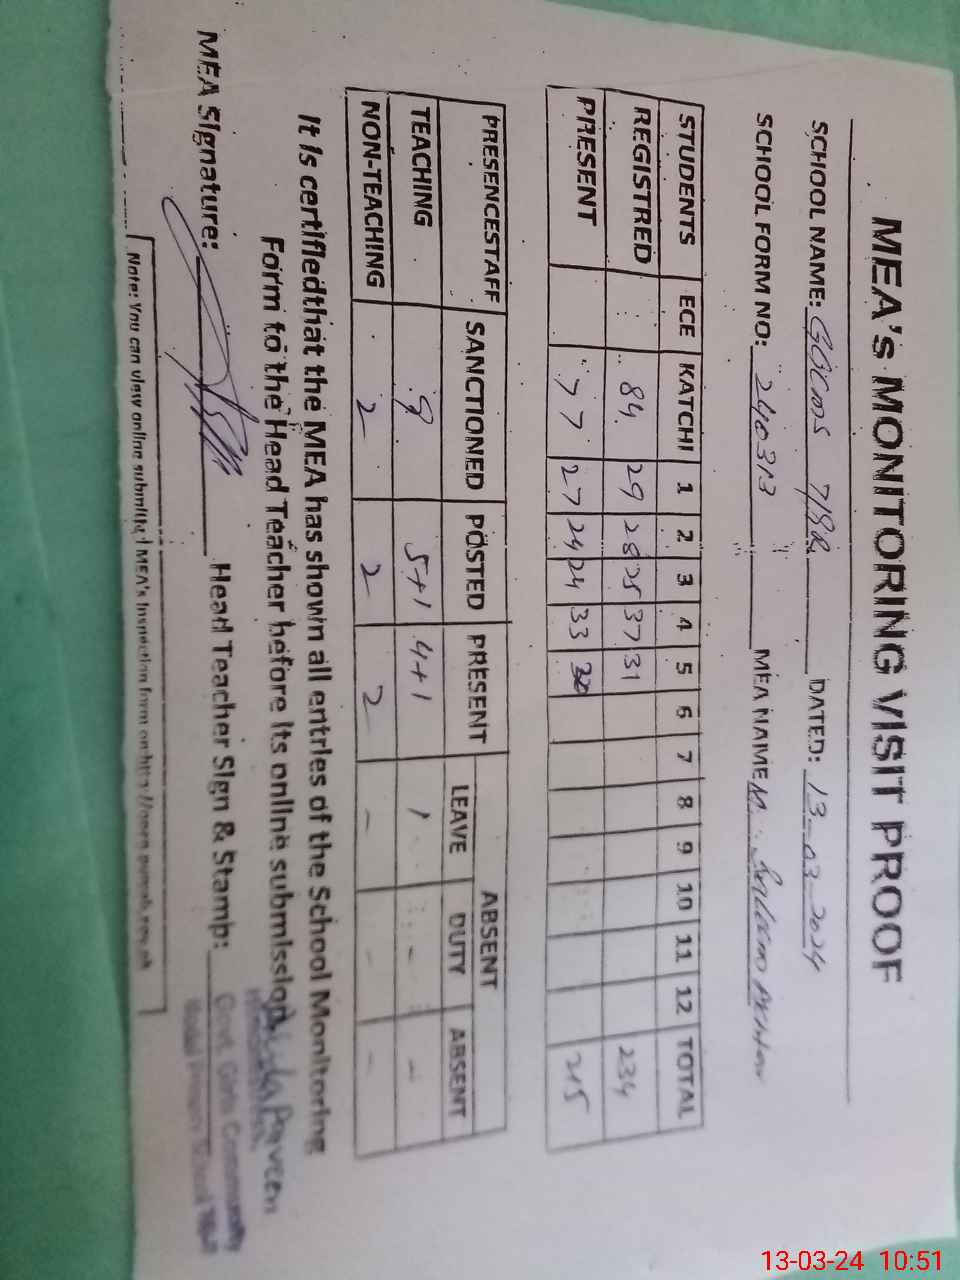 MEA's MONITORING VISIT PROOF
SCHOOL NAME: GGCMS 7/8R DATED: 13-03-2024
SCHOOL FORM NO: 240313 MEA NAME M.
STUDENTS ECE KATCHI 1 2 3 4 5 6 7 8 9 10 11 12 TOTAL
REGISTRED 84 29 28 25 37 31 234
PRESENT 77 27 24 24 33 30 215
PRESENCESTAFF SANCTIONED POSTED PRESENT ABSENT
LEAVE DUTY ABSENT
TEACHING 9 5+1 4+1 1 - -
NON-TEACHING 2 2 2 - - -
It is certifiedthat the MEA has shown all entries of the School Monitoring
Form to the Head Teacher before its online submission
MEA Signature: Head Teacher Sign & Stamp:
Parveen
Govt. Girls Community
Model School
Note: You can view online submitted MEA's Inspection form on
13-03-24 10:51